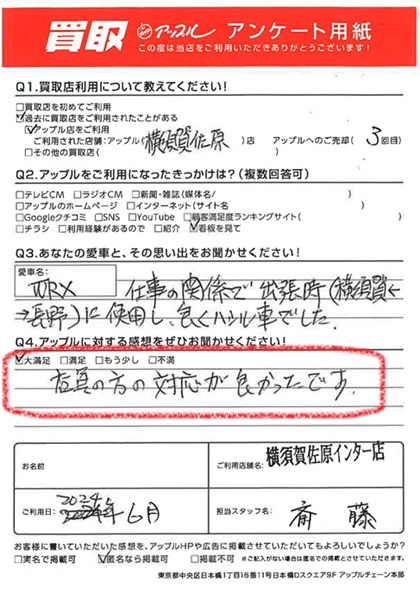 買取 アップル アンケート用紙
この度は当店をご利用いただきありがとうございます!
Q1.買取店利用について教えてください!
□買取店を初めてご利用
☑過去に買取店をご利用されたことがある
☑アップル店をご利用
ご利用された店舗:アップル(横須賀佐原)店 アップルへのご売却(3回目)
□その他の買取店( )
Q2.アップルをご利用になったきっかけは?(複数回答可)
□テレビCM □ラジオCM □新聞・雑誌(媒体名/ )
□アップルのホームページ □インターネット(サイト名 )
□Googleクチコミ □SNS □YouTube □顧客満足度ランキングサイト( )
□チラシ □利用経験があるので □紹介 ☑看板を見て
Q3.あなたの愛車と、その思い出をお聞かせください!
愛車名:
WRX 仕事の関係で出張時(横須賀←
→長野)に使用し、良くハシル車でした。
Q4.アップルに対する感想をぜひお聞かせください!
☑大満足 □満足 □もう少し □不満
店員の方の対応が良かったです。
お名前
ご利用店舗名: 横須賀佐原インター店
ご利用日: 2024年6月
担当スタッフ名: 斎藤
お客様に書いていただいた感想を、アップルHPや広告に掲載させていただいてもよろしいでしょうか?
□実名で掲載可 ☑匿名なら掲載可 □掲載不可 ※ご記入がない場合は匿名での掲載とさせていただきます。
東京都中央区日本橋1丁目16番11号日本橋Dスクエア9F アップルチェーン本部